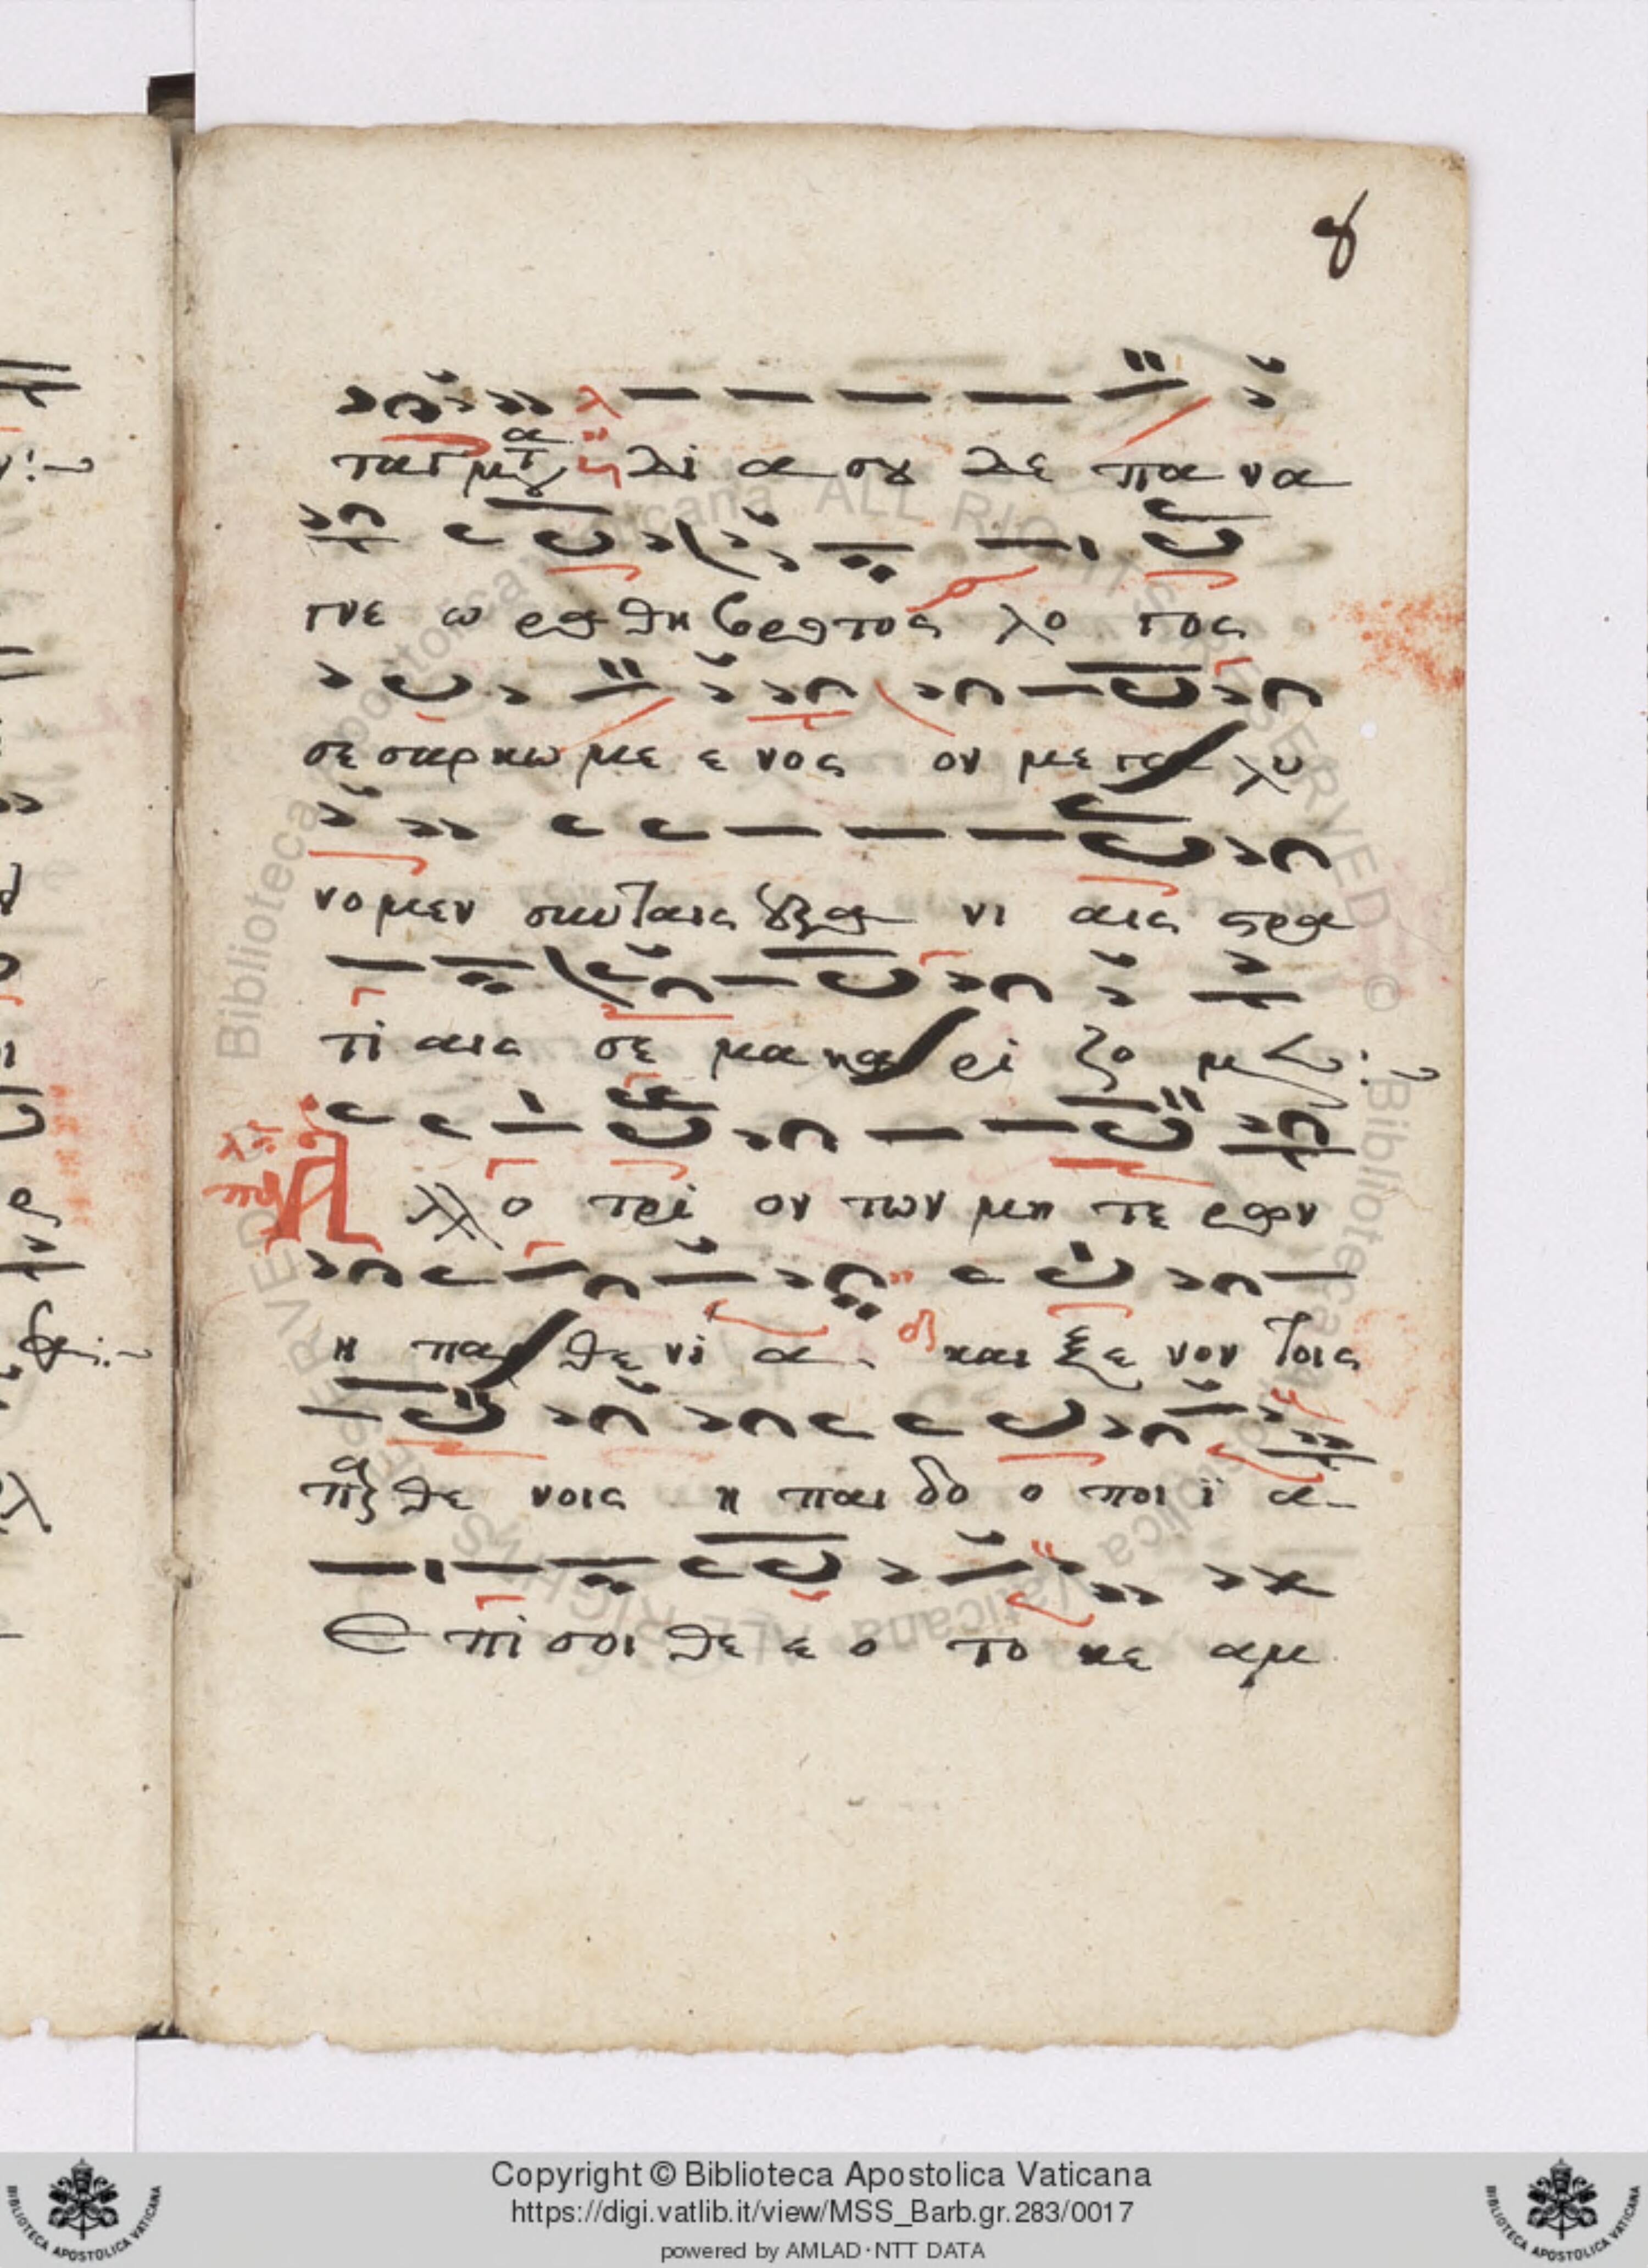 8
ταγματα δι α σου δε πα να
γνε ω ραθη βροτοις λο γος
σε σαρκω με ε νος ον με γα λυ
νο μεν συν ταις ουρα νι αις στρα
τι αις σε μα κα ρι ζο μεν:
Αλ λο τρι ον των μη τε ρων
η παρ θε νι α και ξε νον τοις
παρ θε νοις η παι δο ο ποι ϊ α
Ε πι σοι θε ε ο το κε αμ
Copyright © Biblioteca Apostolica Vaticana
https://digi.vatlib.it/view/MSS_Barb.gr.283/0017
powered by AMLAD·NTT DATA